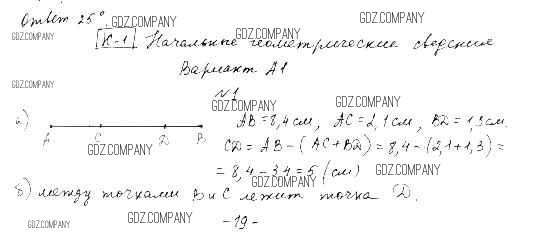 Ответ 25°. GDZ.COMPANY GDZ.COMPANY
GDZ.COMPANY К-1 Начальные геометрические сведения
Вариант А1
GDZ.COMPANY
№1
GDZ.COMPANY GDZ.COMPANY
а) AB = 8,4 см, AC = 2,1 см, BD = 1,3 см.
A C D B
CD = AB - (AC + BD) = 8,4 - (2,1 + 1,3) =
GDZ.COMPANY
= 8,4 - 3,4 = 5 (см) GDZ.COMPANY
GDZ.COMPANY
б) между точками В и С лежит точка D.
GDZ.COMPANY GDZ.COMPANY - 19 - GDZ.COMPANY